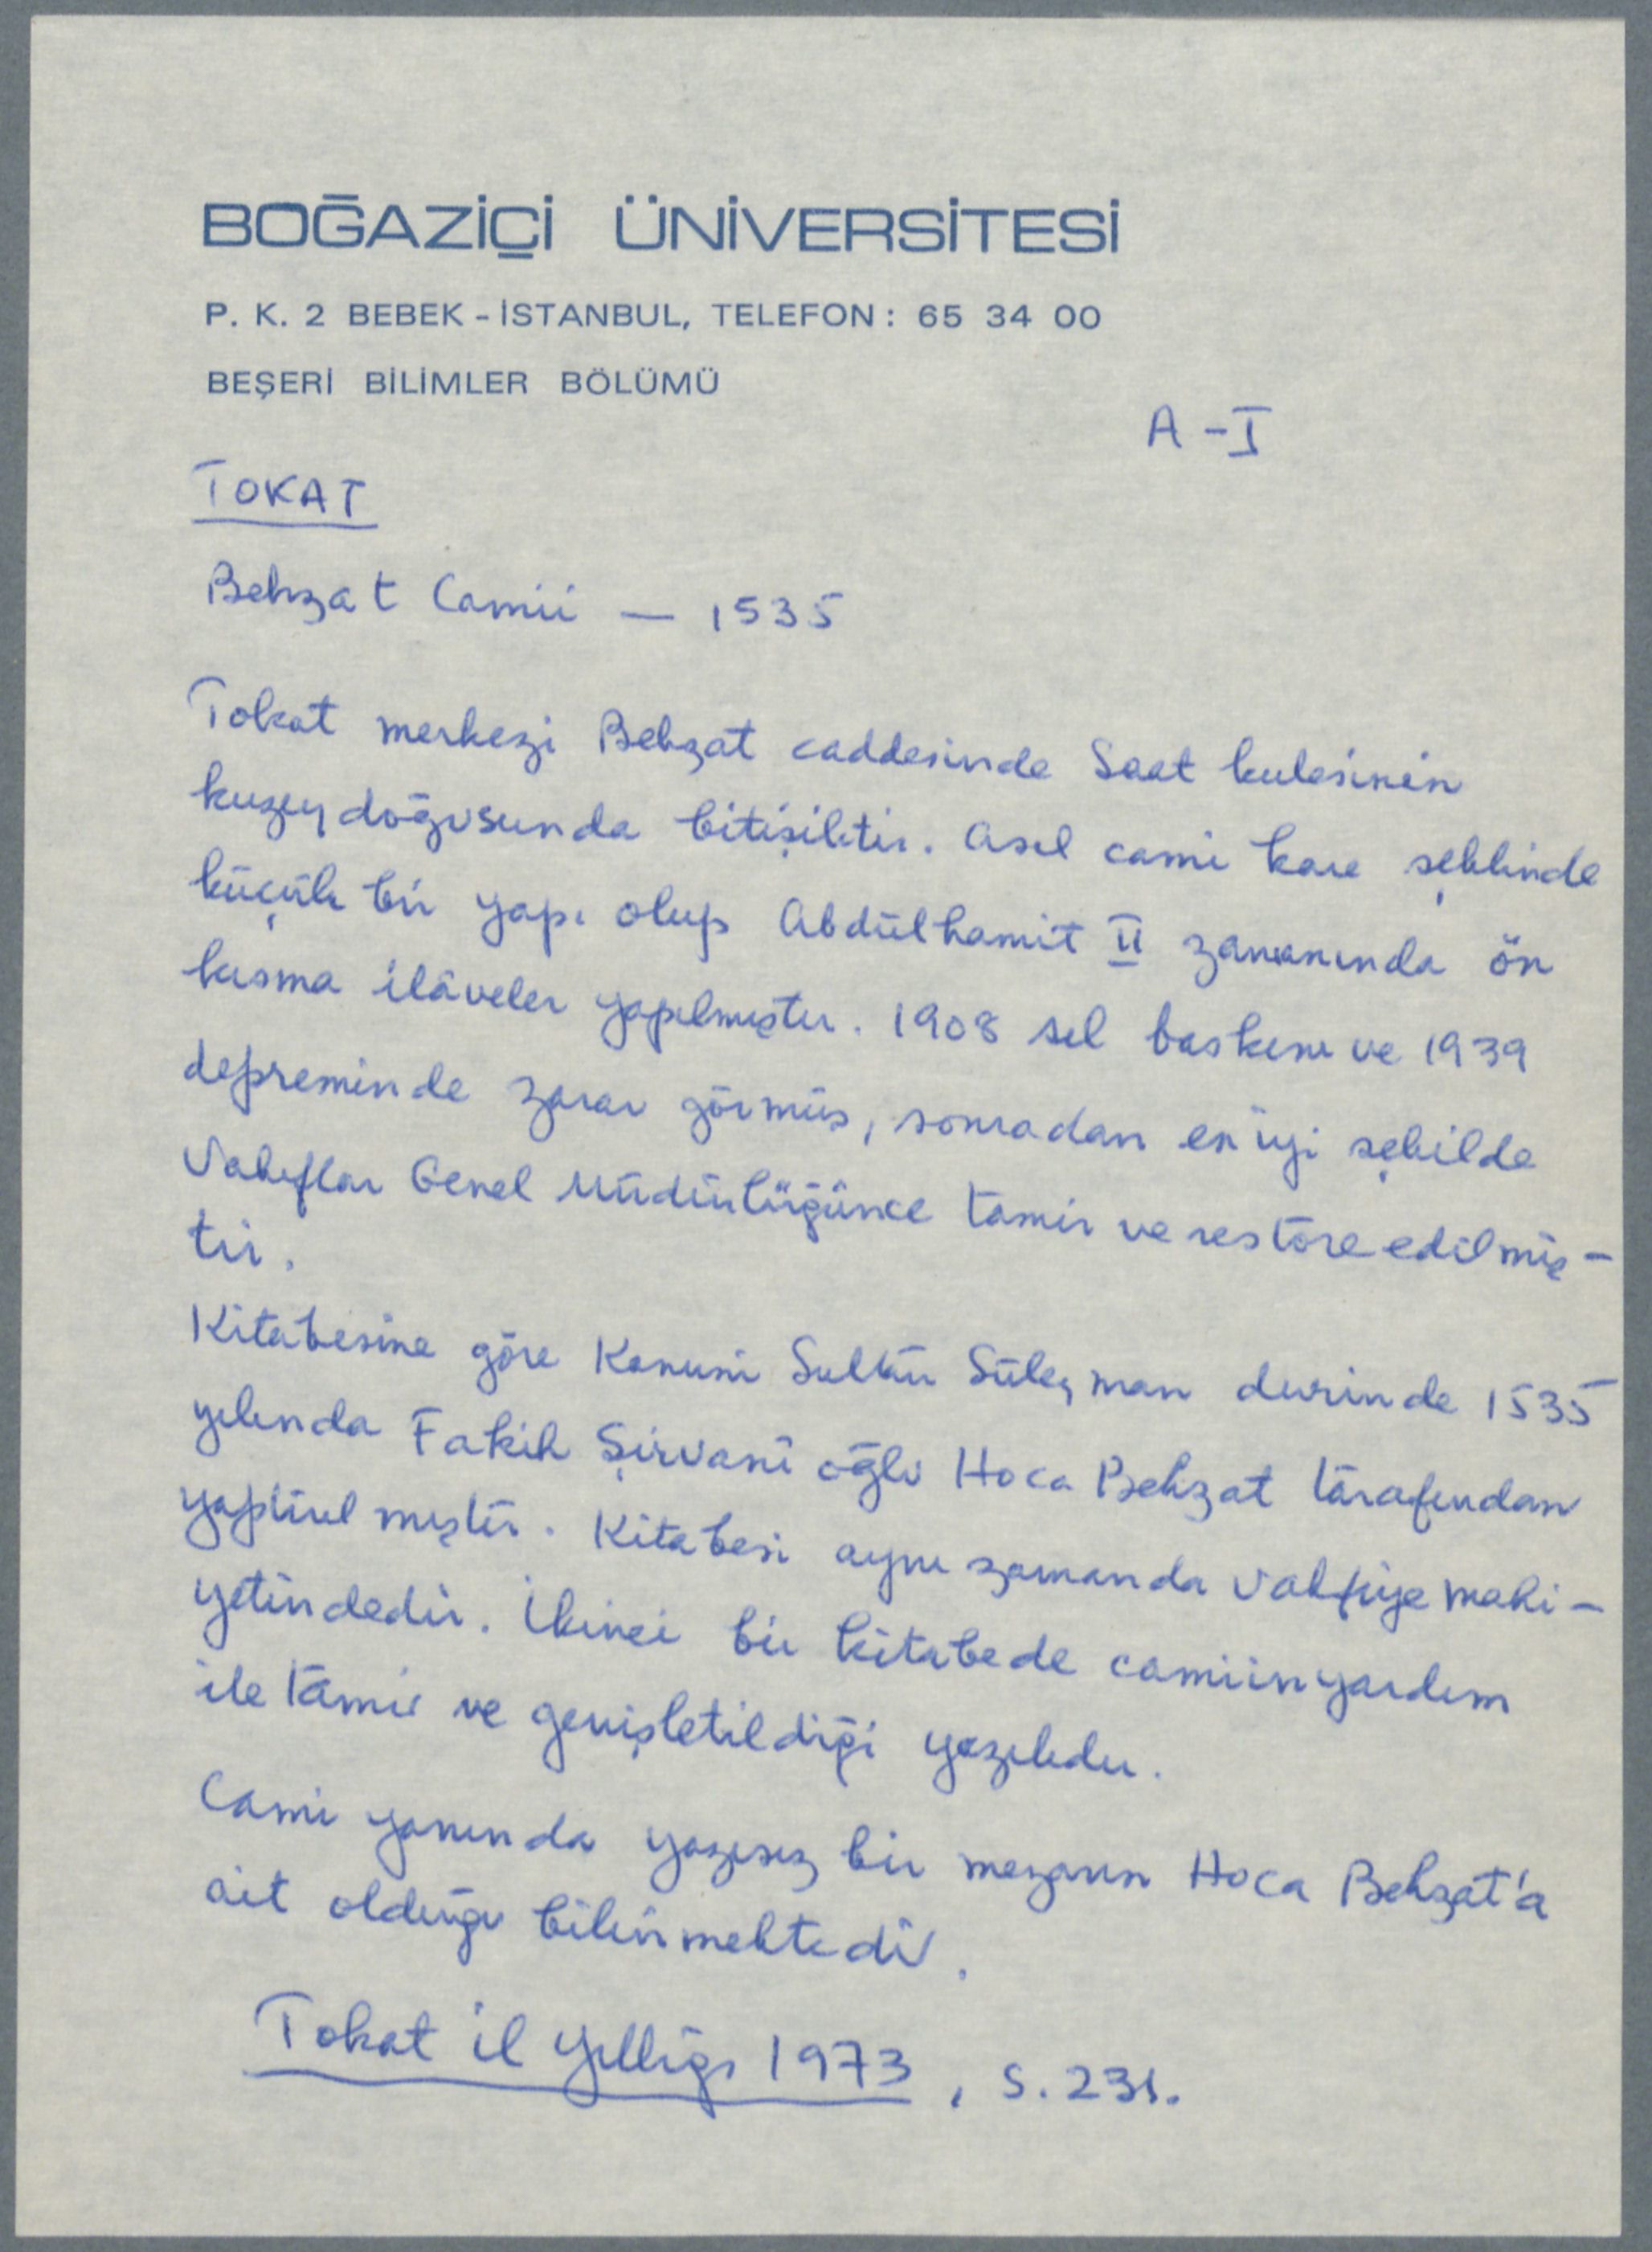 BOĞAZİÇİ ÜNİVERSİTESİ
P. K. 2 BEBEK - İSTANBUL, TELEFON : 65 34 00
BEŞERİ BİLİMLER BÖLÜMÜ
A - I
TOKAT
Behzat Camii — 1535
Tokat merkezi Behzat caddesinde Saat kulesinin
kuzey doğusunda bitişiktir. Asıl cami kare şeklinde
küçük bir yapı olup Abdülhamit II zamanında ön
kısma ilâveler yapılmıştır. 1908 sel baskını ve 1939
depreminde zarar görmüş, sonradan en iyi şekilde
Vakıflar Genel Müdürlüğünce tamir ve restore edilmiş-
tir.
Kitabesine göre Kanuni Sultan Süleyman devrinde 1535
yılında Fakih Şirvani oğlu Hoca Behzat tarafından
yaptırılmıştır. Kitabesi aynı zamanda vakfiye mahi-
yetindedir. İkinci bir kitabede camiin yardım
ile tamir ve genişletildiği yazılıdır.
Cami yanında yazısız bir mezarın Hoca Behzat'a
ait olduğu bilinmektedir.
Tokat il Yıllığı 1973, s. 231.